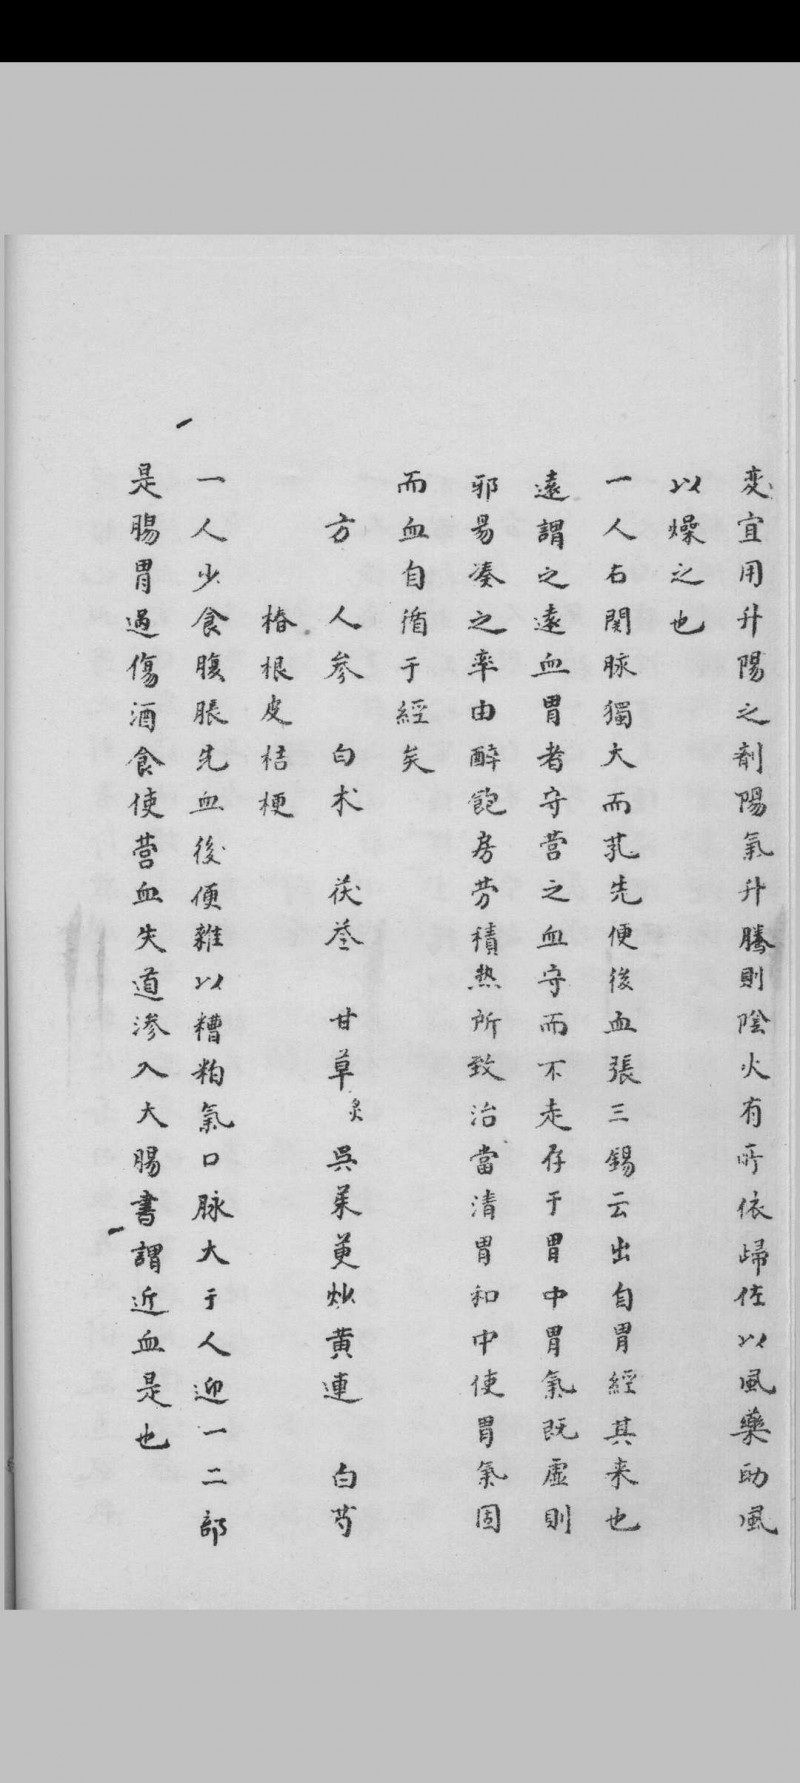 変宜用升陽之剤陽氣升騰則陰火有所依歸佐以風藥助風
以燥之也
一人右関脉獨大而芤先便後血張三錫云出自胃經其来也
遠謂之遠血胃者守營之血守而不走存于胃中胃氣既虛則
邪易湊之率由醉飽房劳積熱所致治當清胃和中使胃氣固
而血自循于經矣
方 人参 白术 茯苓 甘草炙 吳茱萸炒黄連 白芍
椿根皮桔梗
一人少食腹脹先血後便雜以糟粕氣口脉大于人迎一二部
是腸胃過傷酒食使營血失道滲入大腸書謂近血是也